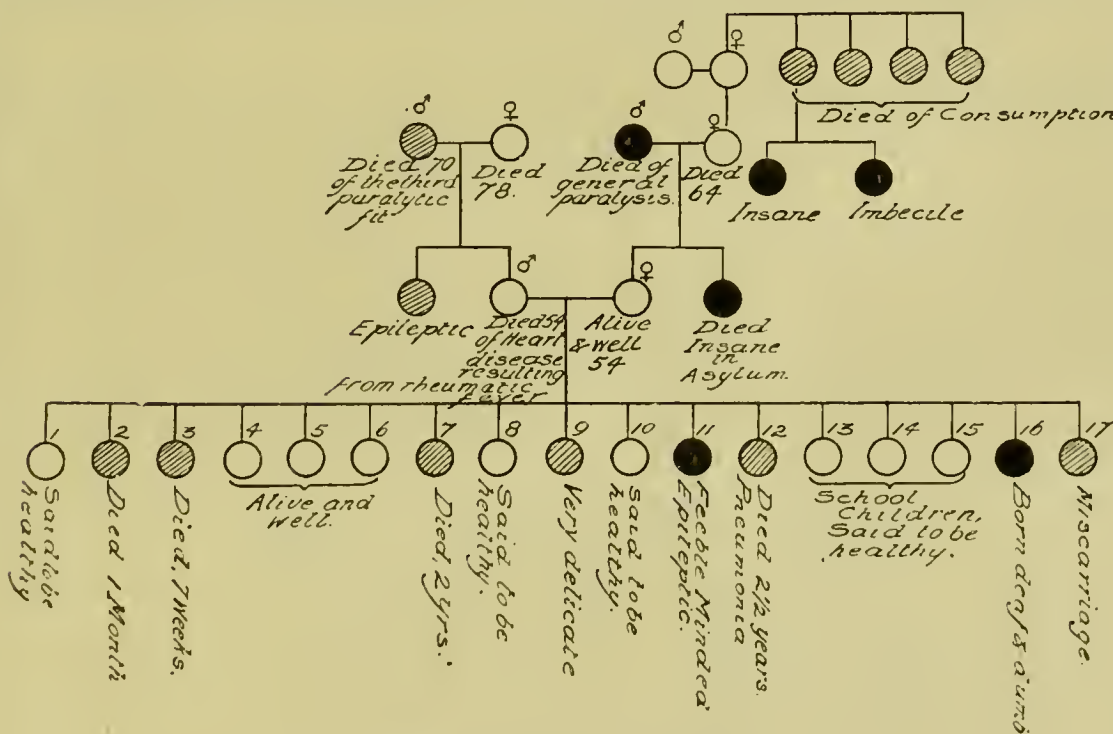 ♂ ♀
Died of Consumption
♂ ♀ ♂ ♀
Died 70
of the third
paralytic
fit
Died
78.
Died of
general
paralysis.
Died
64
Insane
Imbecile
♂ ♀
Epileptic
Died 54
of Heart
disease
resulting
from rheumatic
fever
Alive
& well
54
Died
Insane
in
Asylum.
1 2 3 4 5 6 7 8 9 10 11 12 13 14 15 16 17
Said to be
healthy
Died 1 Month
Died, 7 Weeks.
Alive and
Well.
Died, 2 yrs.
Said to be
healthy.
Very delicate
Said to be
healthy.
Feeble Minded
Epileptic.
Died 2½ years.
Pneumonia
School
Children,
Said to be
healthy.
Born deaf & dumb
Miscarriage.